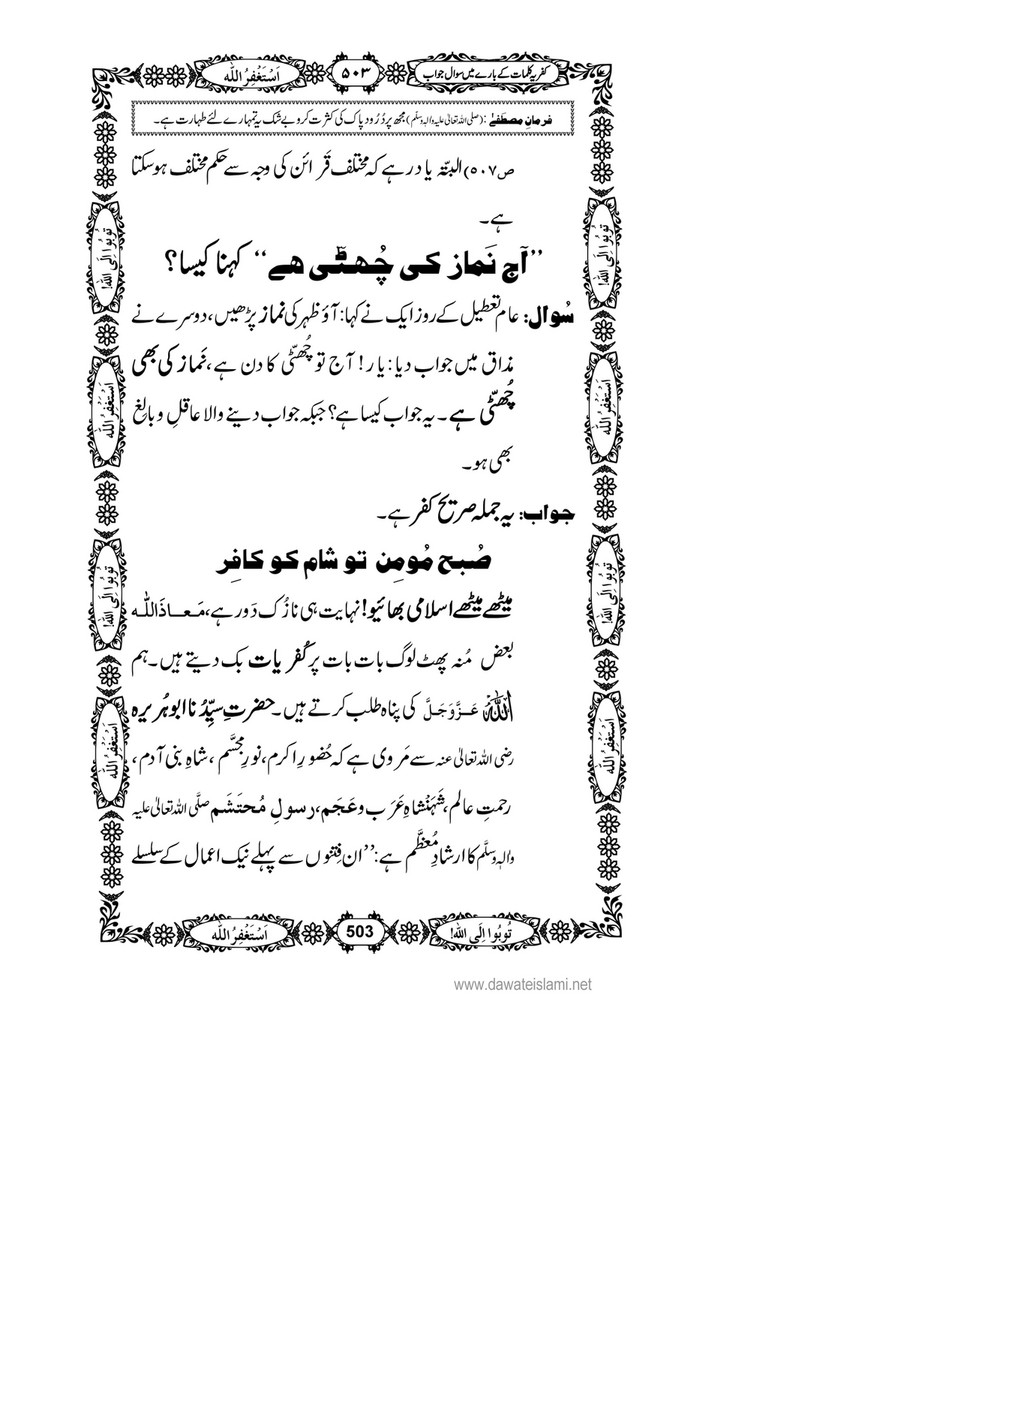 کفریہ کلمات کے بارے میں سوال جواب ۵۰۳ اَسْتَغْفِرُ اللّٰه
فرمانِ مصطَفٰے: (صلی اللہ تعالیٰ علیہ والہ وسلّم) مجھ پر دُرُود پاک کی کثرت کرو بے شک یہ تمہارے لئے طہارت ہے۔
ص۵۰۷) البتّہ یاد رہے کہ مختلف قَرائن کی وجہ سے حکم مختلف ہوسکتا
ہے۔
’’آج نَماز کی چُھٹّی ھے‘‘ کہنا کیسا؟
سُوال: عام تعطیل کے روز ایک نے کہا: آؤ ظہر کی نماز پڑھیں، دوسرے نے
مذاق میں جواب دیا: یار! آج تو چُھٹّی کا دن ہے، نَماز کی بھی
چُھٹّی ہے۔ یہ جواب کیسا ہے؟ جبکہ جواب دینے والا عاقِل و بالِغ
بھی ہو۔
جواب: یہ جملہ صریح کفر ہے۔
صُبح مُومِن تو شام کو کافِر
میٹھے میٹھے اسلامی بھائیو! نہایت ہی نازُک دَور ہے، مَعاذَاللّٰه
بعض مُنہ پھٹ لوگ بات بات پر کُفرِیات بک دیتے ہیں۔ ہم
اللّٰه عَزَّوَجَلَّ کی پناہ طلب کرتے ہیں۔ حضرتِ سیِّدُنا ابوہُریرہ
رضی اللہ تعالیٰ عنہ سے مَروی ہے کہ حُضُورِ اکرم، نورِ مجسَّم، شاہِ بنی آدم،
رحمتِ عالم، شَہَنْشاہِ عَرَب و عَجَم، رسولِ مُحتَشَم صلَّی اللہ تعالیٰ علیہ
والہٖ وسلَّم کا ارشادِ مُعظَّم ہے: ’’ان فِتنوں سے پہلے نیک اعمال کے سلسلے
تُوبُوا اِلَی اللّٰه! 503 اَسْتَغْفِرُ اللّٰه
تُوبُوا اِلَی اللّٰه!
اَسْتَغْفِرُ اللّٰه
تُوبُوا اِلَی اللّٰه!
اَسْتَغْفِرُ اللّٰه
تُوبُوا اِلَی اللّٰه!
اَسْتَغْفِرُ اللّٰه
تُوبُوا اِلَی اللّٰه!
اَسْتَغْفِرُ اللّٰه
www.dawateislami.net